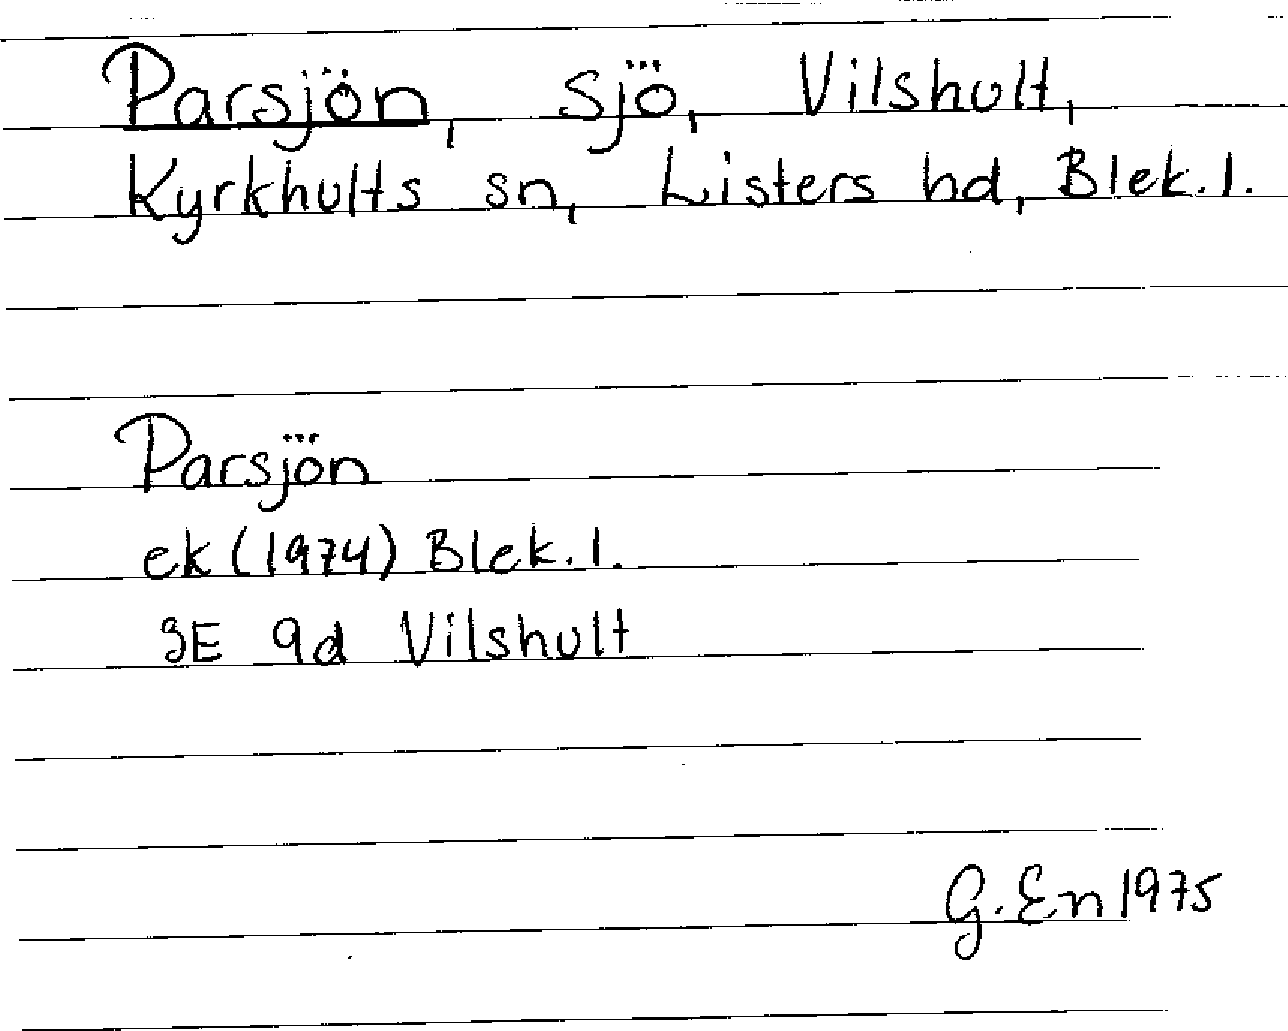 Parsjön, sjö, Vilshult,
Kyrkhults sn, Listers hd, Blek. l.
Parsjön
ek (1974) Blek. l.
3E 9d Vilshult
G. En 1975